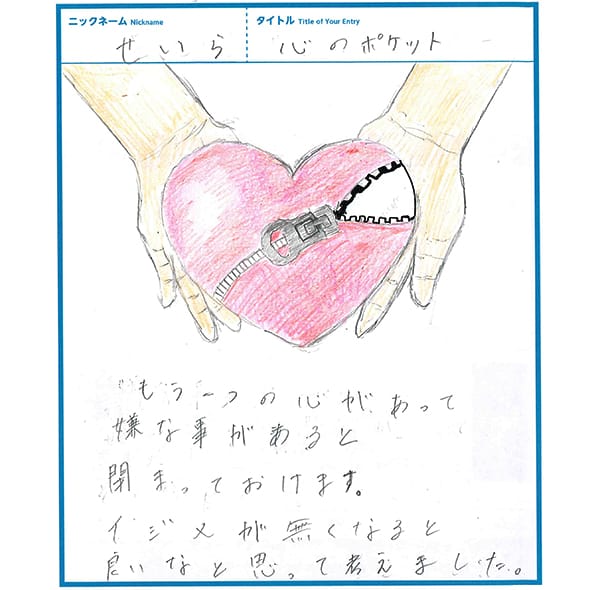 ニックネーム Nickname
タイトル Title of Your Entry
せいら 心のポケット
もう一つの心があって
嫌な事があると
閉まっておけます。
イジメが無くなると
良いなと思って考えました。